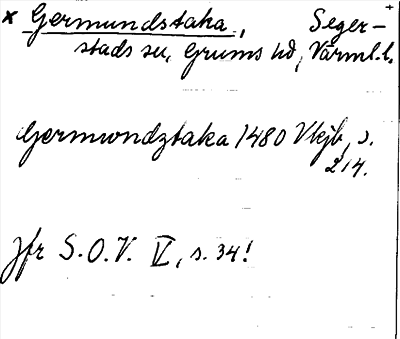 × Germundstaka, Seger-
stads sn, Grums hd, Värml. l.
Germwndztaka 1480 Vkjb, s.
214.
Jfr S.O.V. V, s. 34!